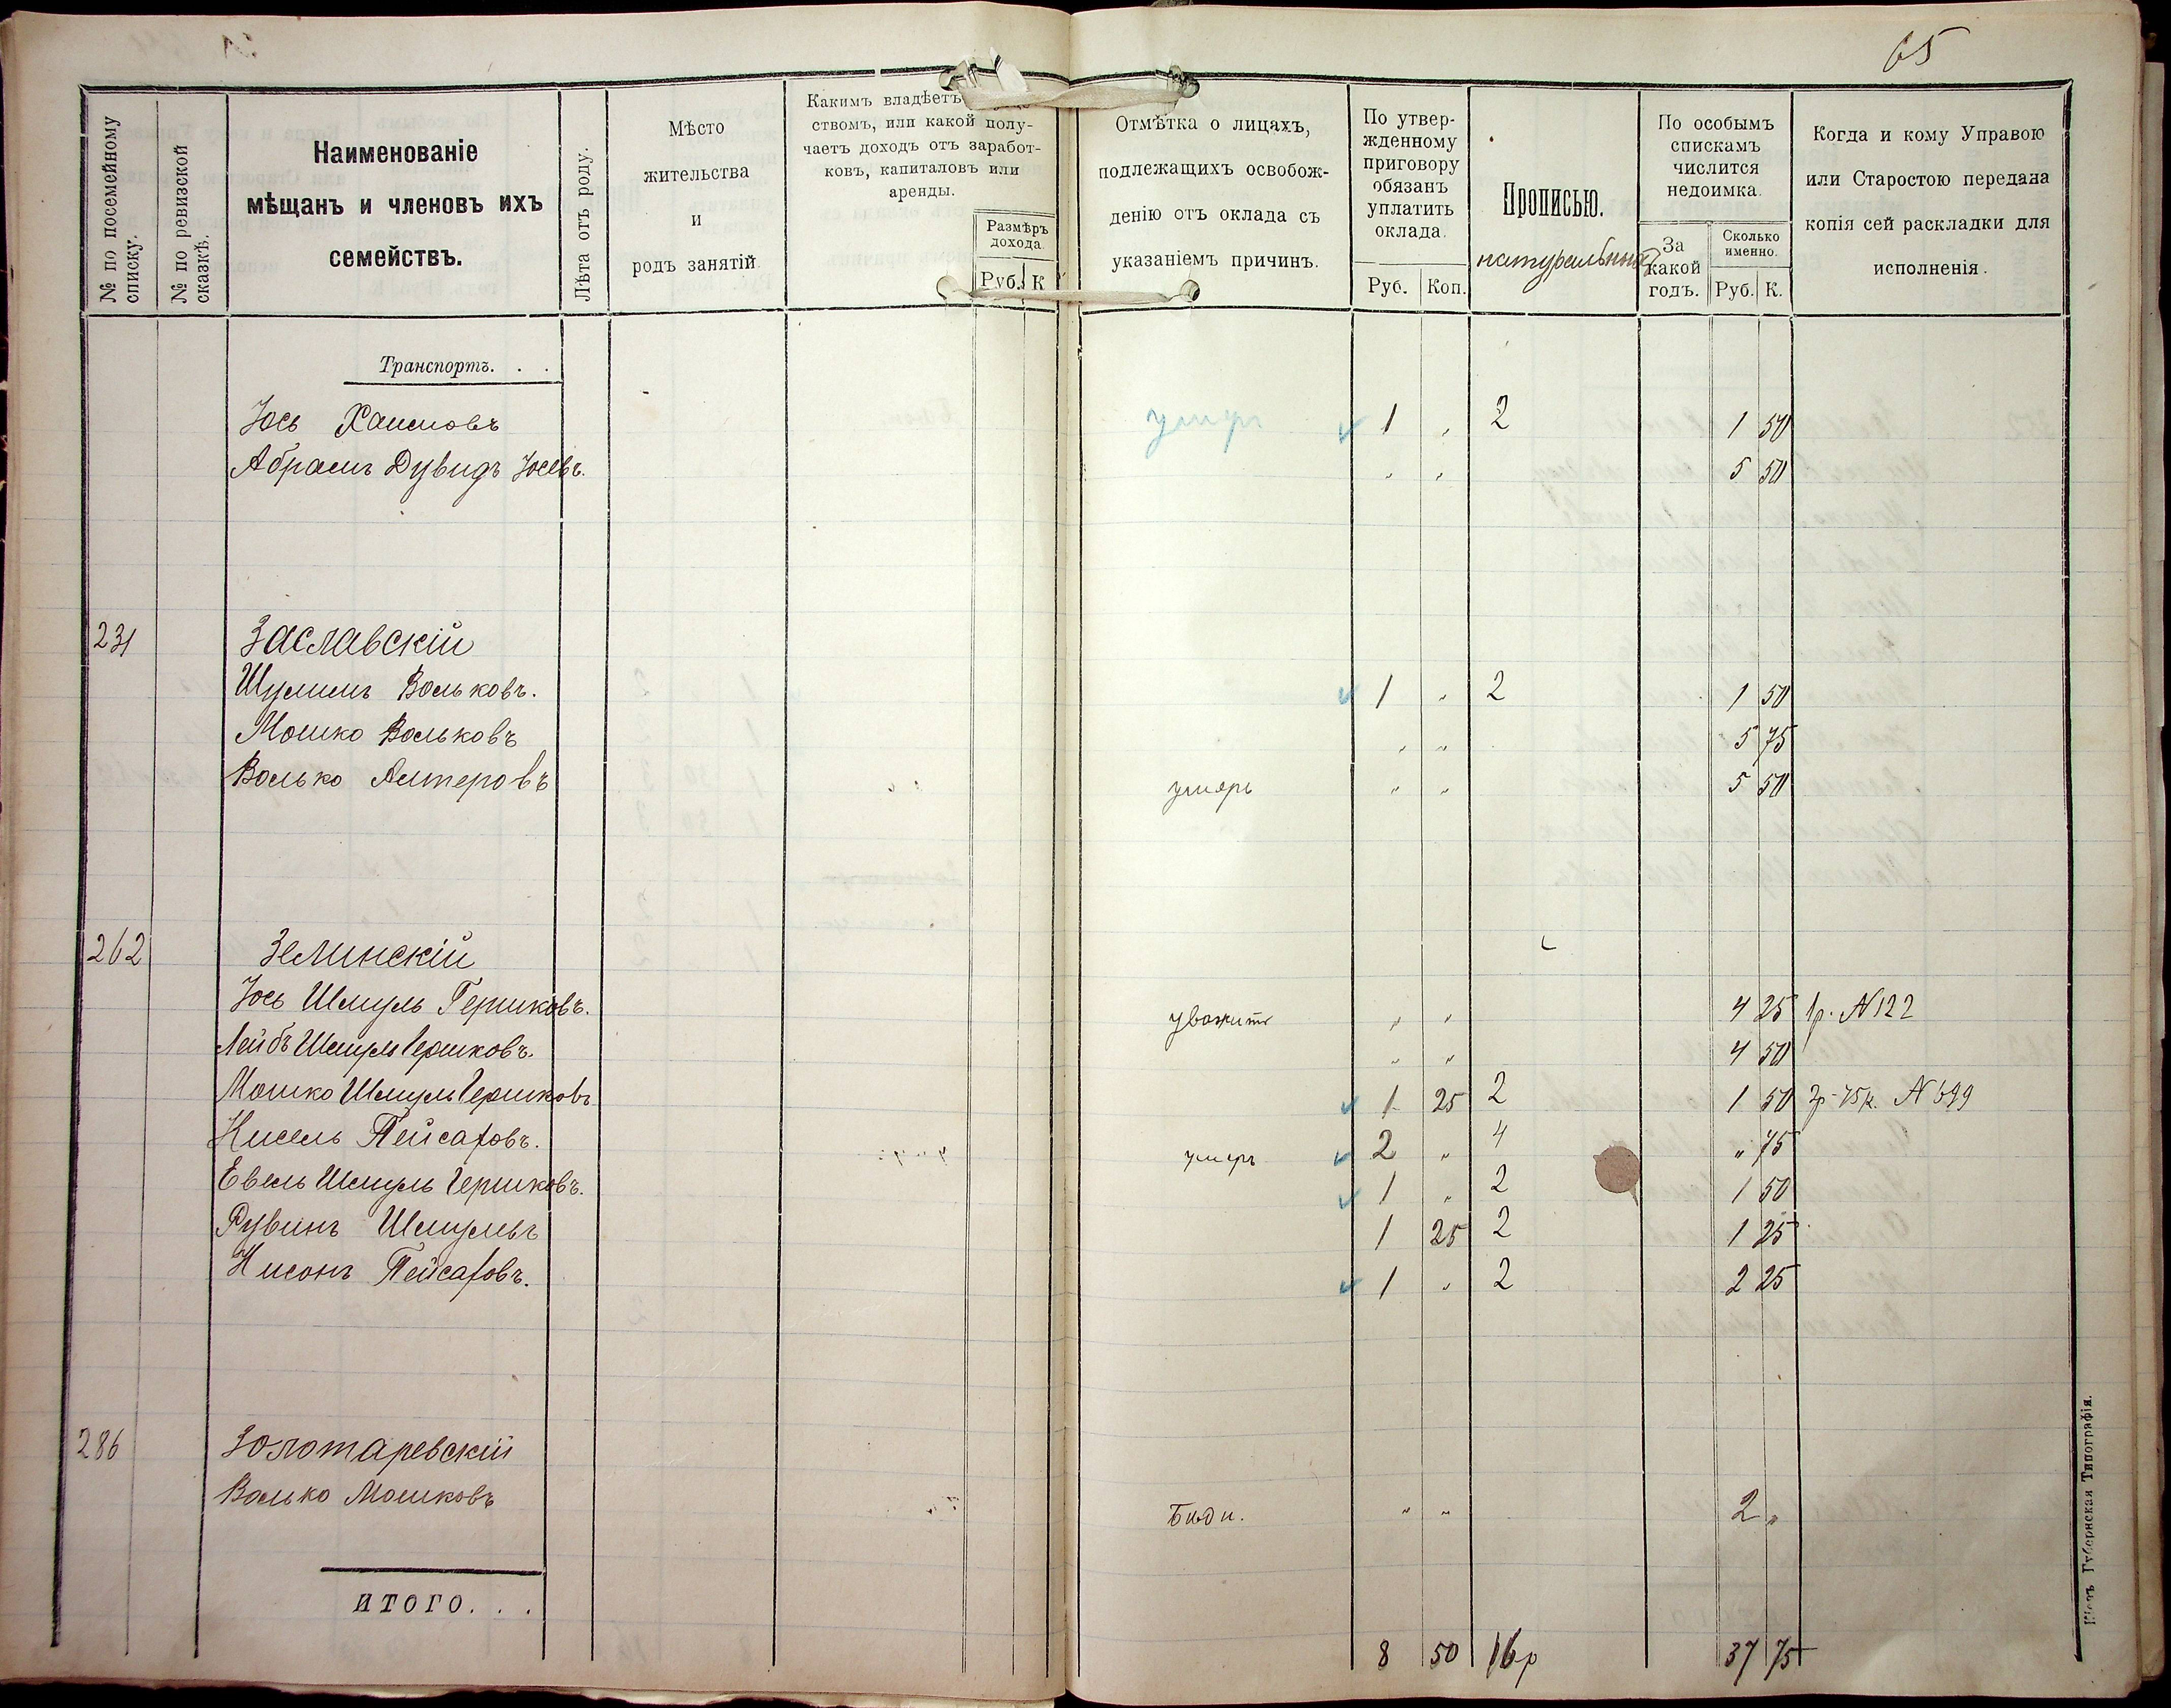 65
№ по посемейному списку.
№ по ревизской сказкѣ.
Наименованіе
мѣщанъ и членовъ ихъ
семействъ.
Лѣта отъ роду.
Мѣсто
жительства
и
родъ занятій
Какимъ владѣетъ
ствомъ, или какой полу-
чаетъ доходъ отъ заработ-
ковъ, капиталовъ или
аренды.
Размѣръ
дохода.
Руб. К
Отмѣтка о лицахъ,
подлежащихъ освобож-
денію отъ оклада съ
указаніемъ причинъ.
По утвер-
жденному
приговору
обязанъ
уплатить
оклада.
Руб. Коп.
Прописью.
По особымъ
спискамъ
числится
недоимка.
За
какой
годъ.
Сколько
именно.
Руб. К.
Когда и кому Управою
или Старостою передана
копія сей раскладки для
исполненія.
Транспортъ. . .
Іось Хаимовъ умеръ 1 „ 2 1 50
Абрамъ Дувидъ Іосевъ. „ „ 5 50
231 Заславскій
Шулимъ Вольковъ. 1 „ 2 1 50
Мошко Вольковъ „ „ 5 75
Волько Алтеровъ умеръ „ „ 5 50
262 Зелинскій
Іось Шмуль Гершковъ. уважить „ „ 4 25 1р. N 122
Лейбъ Шмуль Гершковъ. „ „ 4 50
Мошко Шмуль Гершковъ 1 25 2 1 50 75к. N 699
Нисель Пейсаховъ. умеръ 2 „ 4 „ 75
Евель Шмуль Гершковъ. 1 „ 2 1 50
Рувинъ Шмулевъ 1 25 2 1 25
Нисонъ Пейсаховъ. 1 „ 2 2 25
286 Золотаревскій
Волько Мошковъ Бѣдн. „ „ 2 „
ИТОГО. . .
8 50 16р 37 75
Губернская Типографія.